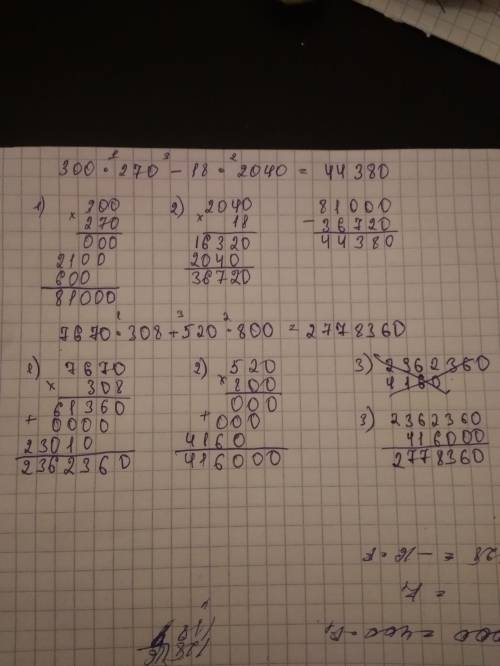 300 · 270 - 18 · 2040 = 44380
1) 200 2) 2040 81000
× 270 × 18 - 36720
000 16320 44380
2100 2040
600 36720
81000
7670 · 308 + 520 · 800 = 2778360
1) 7670 2) 520 3) 2362360
× 308 × 800 4160
61360 000 3) 2362360
+ 0000 + 000 416000
23010 4160 2778360
2362360 416000